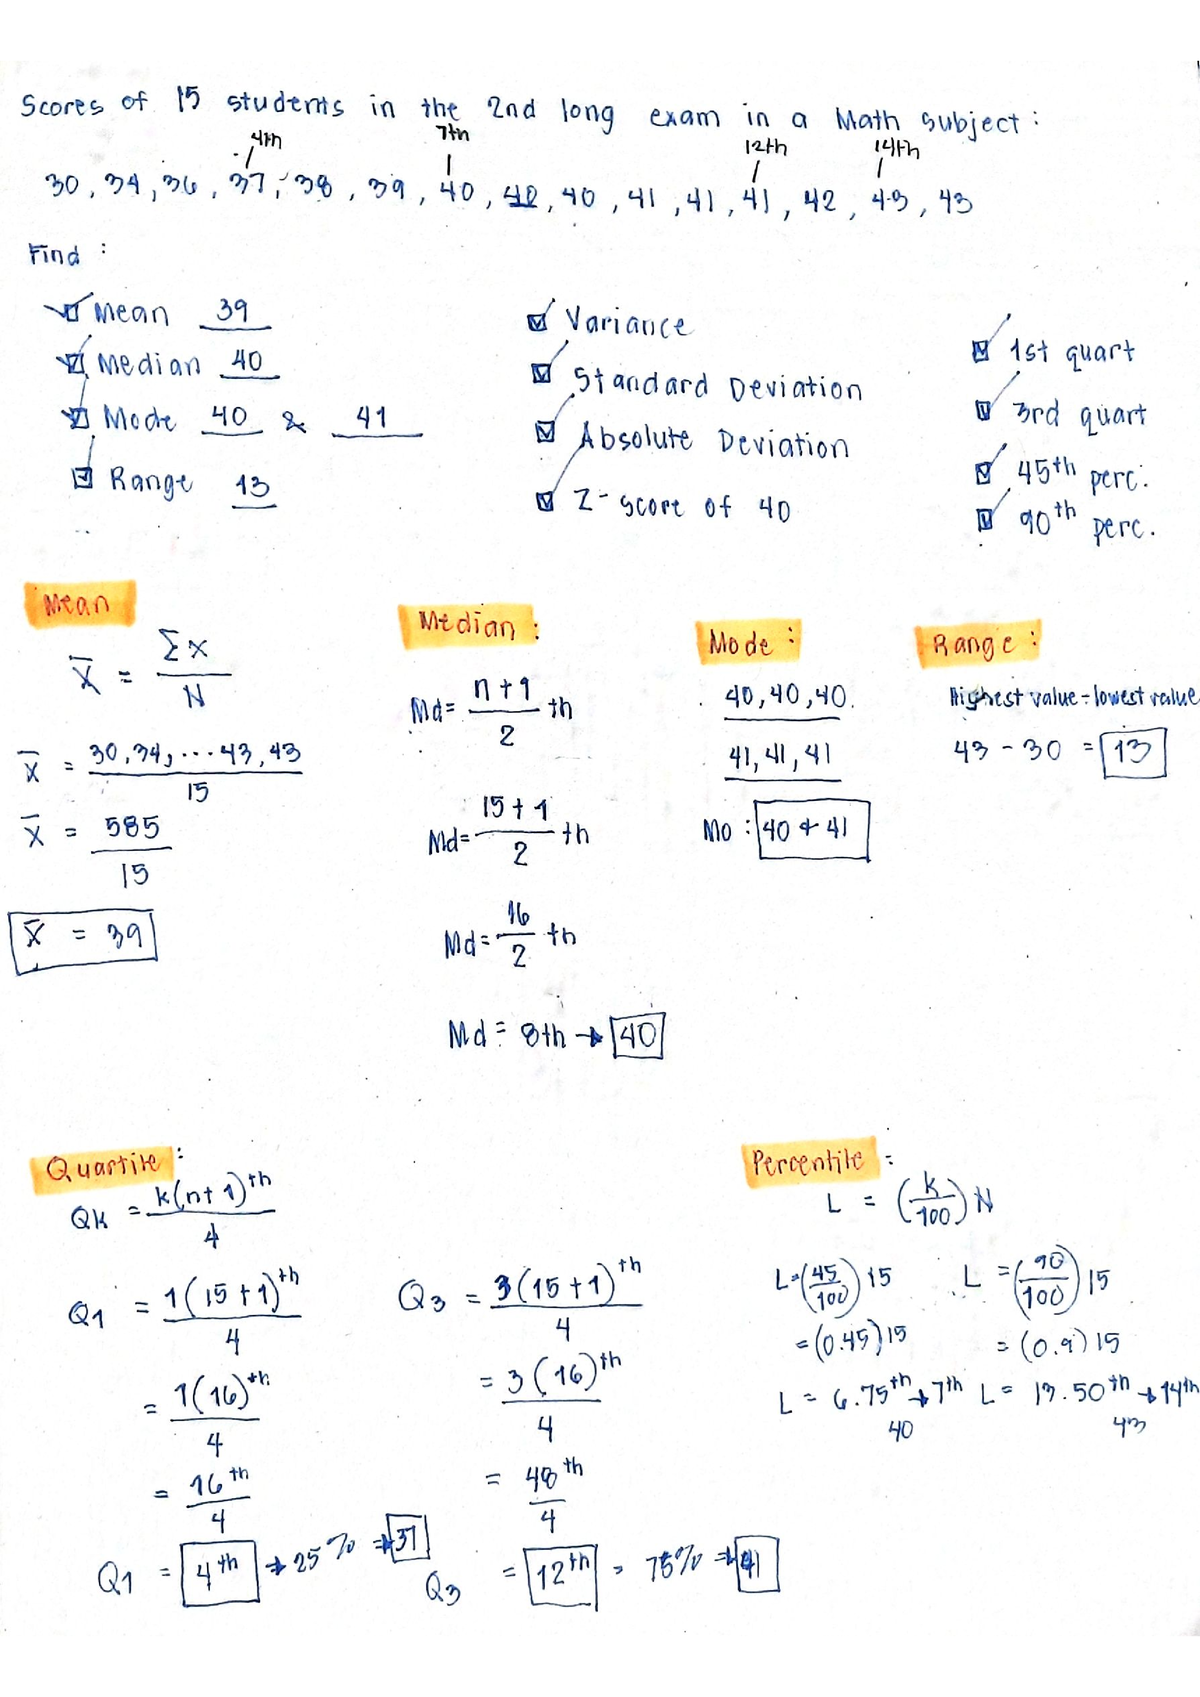 Scores of 15 students in the 2nd long exam in a Math subject :
4th 7th 12th 14th
30, 34, 36, 37, 38, 39, 40, 40, 40, 41, 41, 41, 42, 43, 43
Find :
Mean 39
Median 40
Mode 40 & 41
Range 13
Variance
Standard Deviation
Absolute Deviation
Z-score of 40
1st quart
3rd quart
45th perc.
90th perc.
Mean
X̄ = ΣX / N
X̄ = 30, 34, ... 43, 43 / 15
X̄ = 585 / 15
X̄ = 39
Median :
Md = n+1 / 2 th
Md = 15+1 / 2 th
Md = 16 / 2 th
Md = 8th → 40
Mode :
40, 40, 40.
41, 41, 41
Mo : 40 & 41
Range :
Highest value - lowest value
43 - 30 = 13
Quartile :
QK = k(n+1)th / 4
Q1 = 1(15+1)th / 4
= 1(16)th / 4
= 16th / 4
Q1 = 4th → 25% → 37
Q3 = 3(15+1)th / 4
= 3(16)th / 4
= 48th / 4
Q3 = 12th = 75% → 41
Percentile :
L = (k/100) N
L = (45/100) 15
= (0.45) 15
L = 6.75th → 7th
40
L = (90/100) 15
= (0.9) 15
L = 13.50th → 14th
43